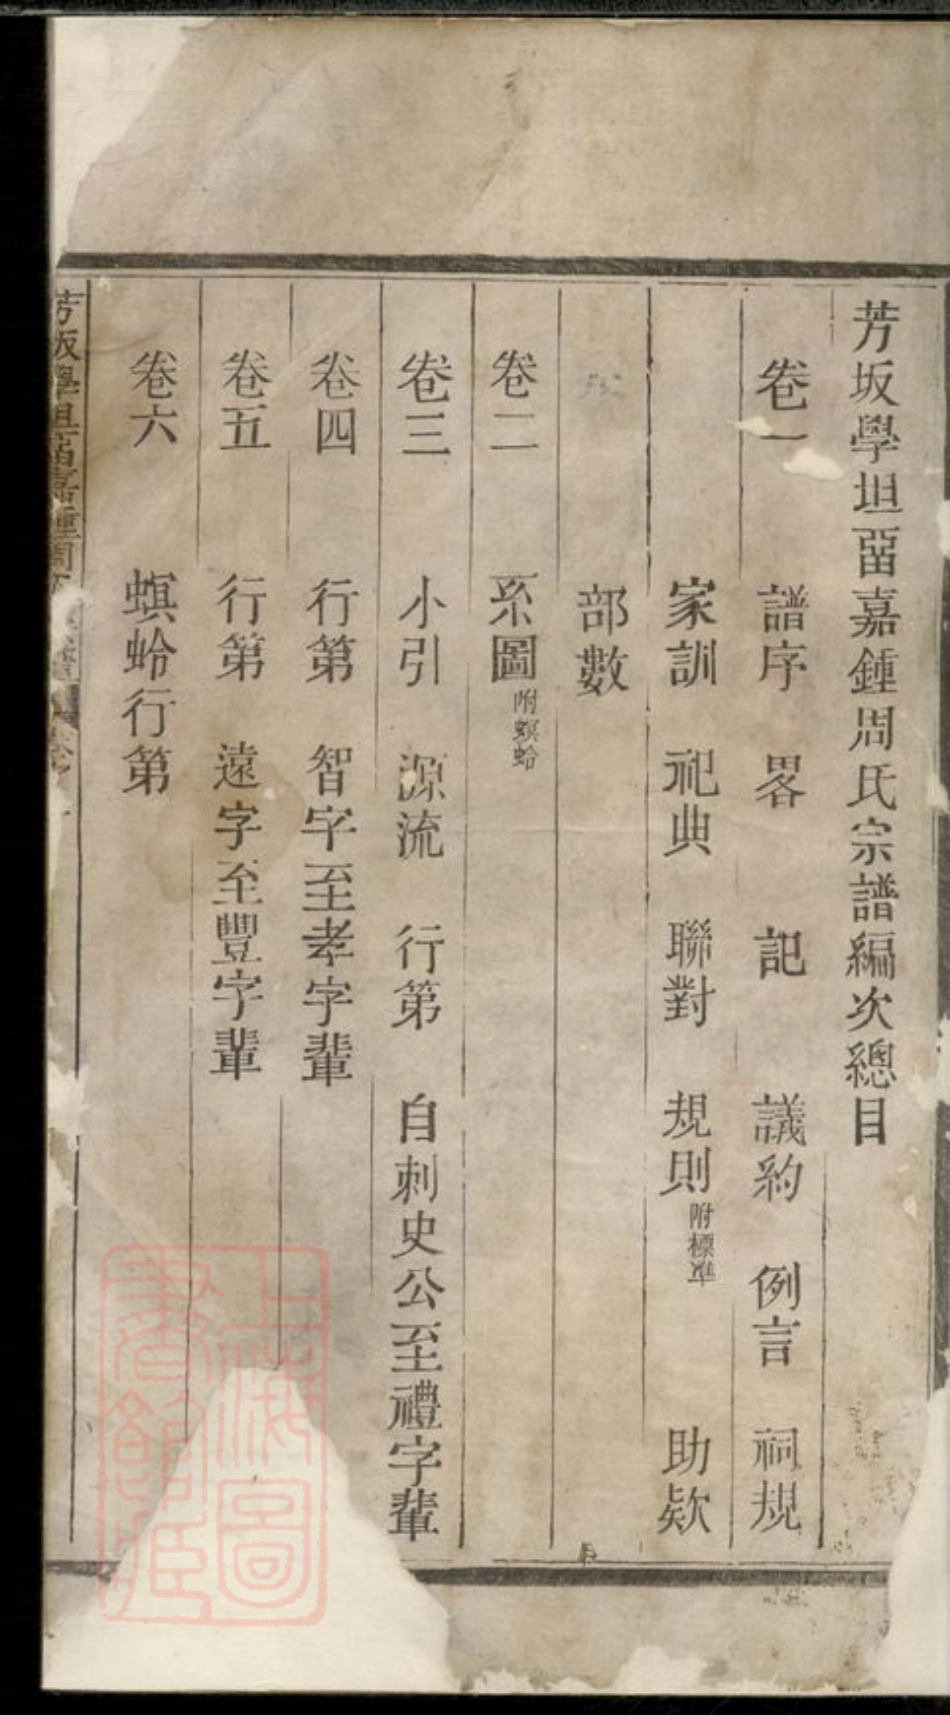 芳坂學坦畱嘉鍾周氏宗譜編次總目
卷一 譜序 畧 記 議約 例言 祠規
家訓 祀典 聯對 規則 附標準 助欵
部數
卷二 系圖 附螟蛉
卷三 小引 源流 行第 自刺史公至禮字輩
卷四 行第 智字至孝字輩
卷五 行第 遠字至豐字輩
卷六 螟蛉行第
芳坂學坦畱嘉鍾周
上海圖書館藏